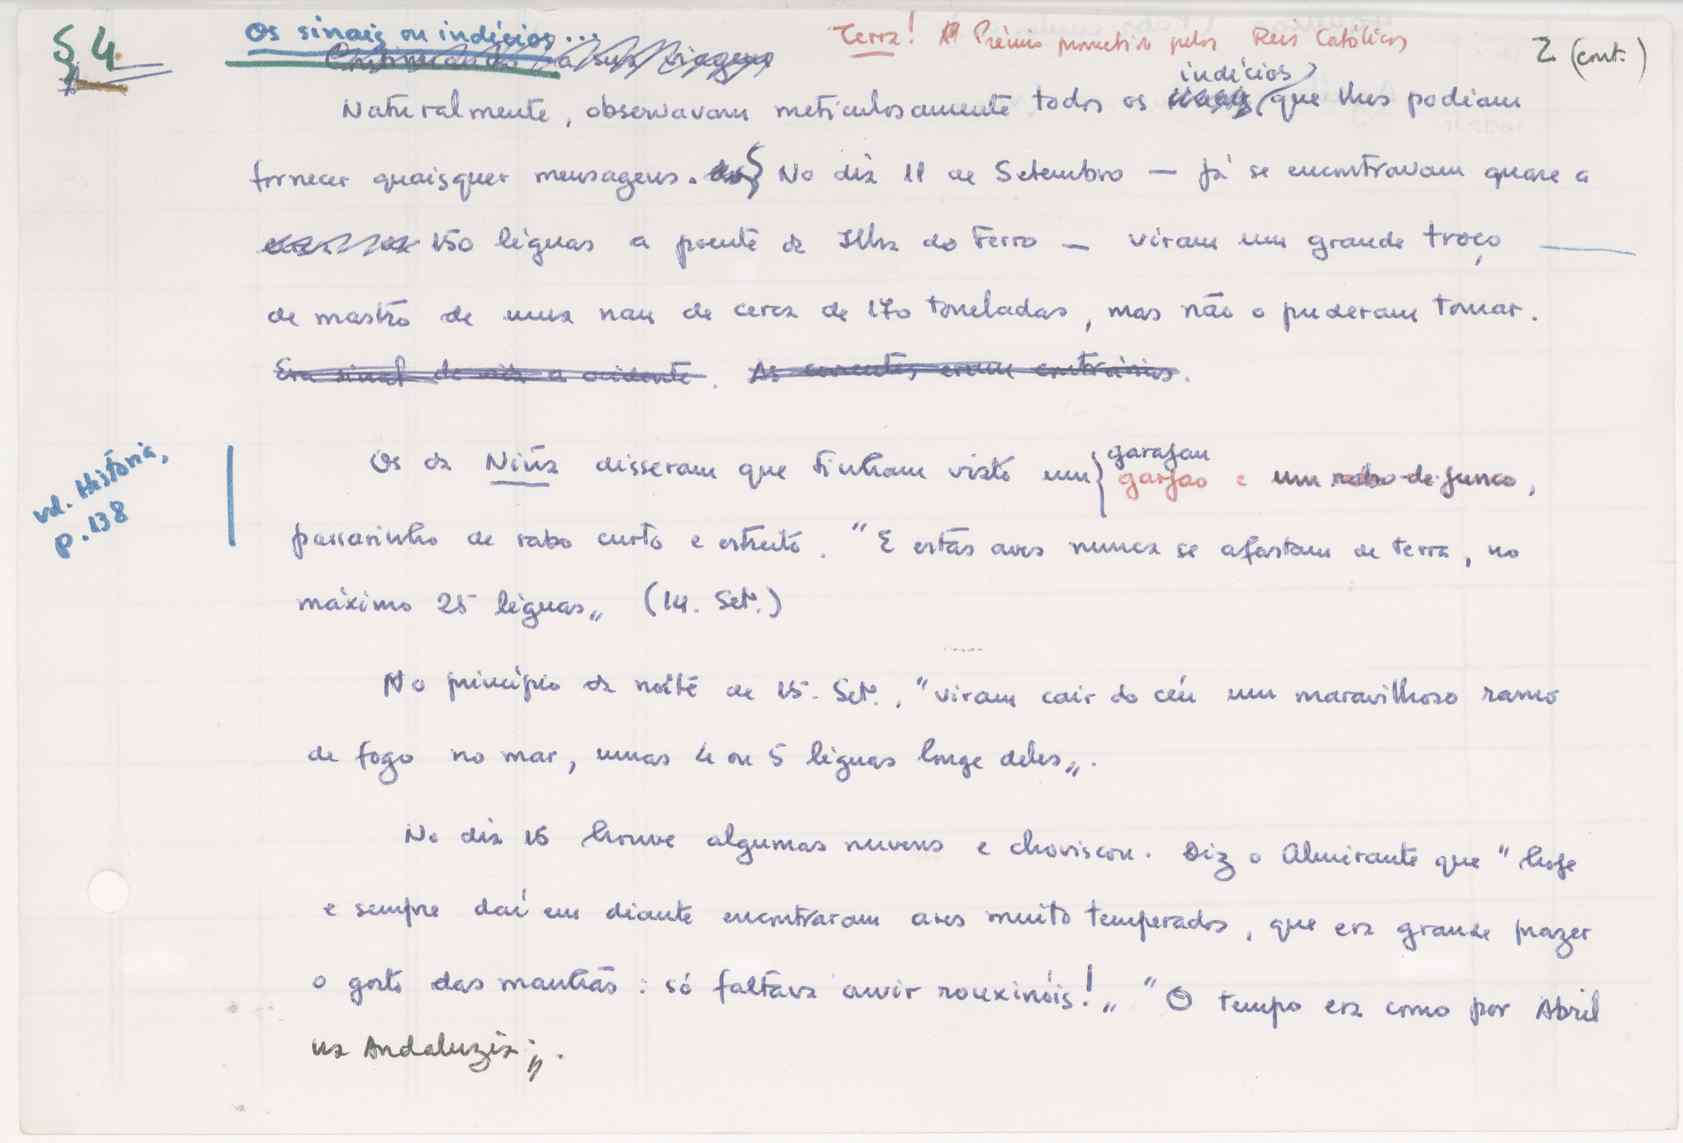 § 4.
Os sinais ou indícios...
Terra! Prémio prometido pelos Reis Católicos
2 (cont.)
indícios
Naturalmente, observavam meticulosamente todos os que lhes podiam
fornecer quaisquer mensagens. No dia 11 de Setembro — já se encontravam quase a
150 léguas a poente da Ilha do Ferro — viram um grande troço
de mastro de uma nau de cerca de 120 toneladas, mas não o puderam tomar.
Era sinal de vir a ocidente. As correntes eram contrárias.
vd. História,
p. 138
garajau
Os da Niña disseram que tinham visto um garjao e um rabo-de-junco,
passarinho de rabo curto e estreito. "E estas aves nunca se afastam de terra, no
máximo 25 léguas„ (14. Set.)
No princípio da noite de 15. Set., "viram cair do céu um maravilhoso ramo
de fogo no mar, umas 4 ou 5 léguas longe deles„.
No dia 16 houve algumas nuvens e choviscou. Diz o Almirante que "hoje
e sempre daí em diante encontraram ares muito temperados, que era grande prazer
o gosto das manhãs: só faltava ouvir rouxinóis!„ "O tempo era como por Abril
na Andaluzia;„.